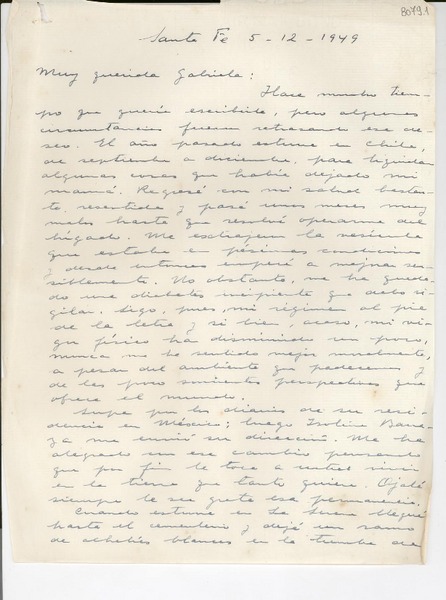 8079.1
Santa Fe 5-12-1949
Muy querida Gabriela:
Hace mucho tiem-
po que quería escribirle, pero algunas
circunstancias fueron retrasando ese de-
seo. El año pasado estuve en Chile,
de septiembre a diciembre, para liquidar
algunas cosas que había dejado mi
mamá. Regresé con mi salud bastan-
te resentida y pasé unos meses muy
malos hasta que resolví operarme del
hígado. Me extrajeron la vesícula
que estaba en pésimas condiciones
y desde entonces empecé a mejorar sen-
siblemente. No obstante, me ha queda-
do una diabetes incipiente que debo vi-
gilar. Sigo, pues, mi régimen al pie
de la letra y si bien, acaso, mi vi-
gor físico ha disminuido un poco,
nunca me he sentido mejor moralmente,
a pesar del ambiente que padecemos y
de las poco sonrientes perspectivas que
ofrece el mundo.
Supe por los diarios de su resi-
dencia en México; luego Isolina Barra-
za me envió su dirección. Me ha
alegrado un ese cambio pensando
que por fin le toca a usted vivir
en la tierra que tanto quiere. Ojalá
siempre le sea grata esa permanencia.
Cuando estuve en La Serena llegué
hasta el cementerio y dejé un ramo
de alhelíes blancos en la tumba de